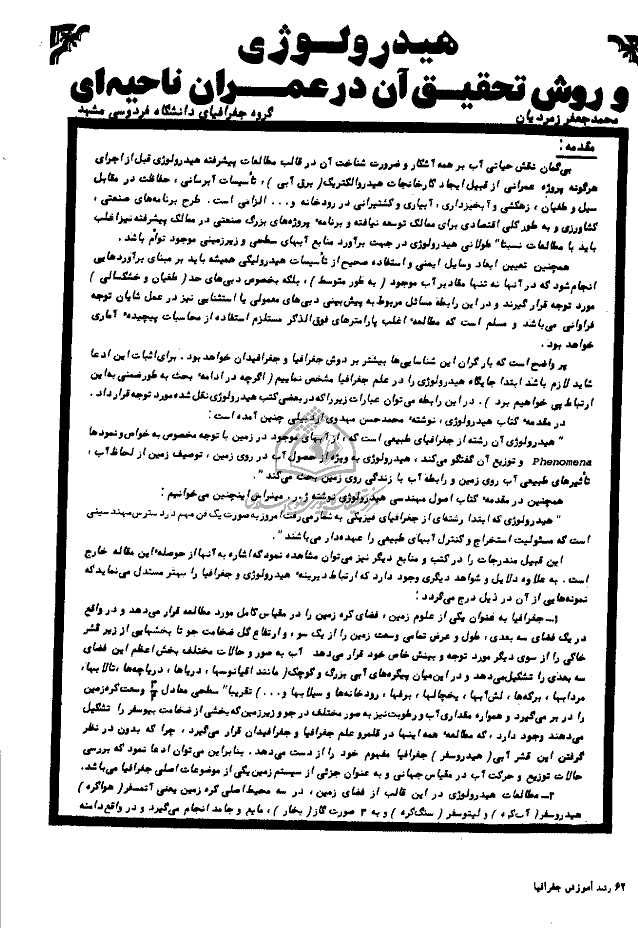 هیدرولوژی
و روش تحقیق آن در عمران ناحیه‌ای
محمدجعفر زمردیان
گروه جغرافیای دانشگاه فردوسی مشهد
مقدمه :
بی‌گمان نقش حیاتی آب بر همه آشکار و ضرورت شناخت آن در قالب مطالعات پیشرفته هیدرولوژی قبل از اجرای
هرگونه پروژه عمرانی از قبیل ایجاد کارخانجات هیدروالکتریک( برق آبی ) ، تأسیسات آبرسانی ، حفاظت در مقابل
سیل و طغیان ، زهکشی و آبخیزداری ، آبیاری و کشتیرانی در رودخانه و... الزامی است . طرح برنامه‌های صنعتی ،
کشاورزی و به طور کلی اقتصادی برای ممالک توسعه نیافته و برنامه‌ٔ پروژه‌های بزرگ صنعتی در ممالک پیشرفته نیز اغلب
باید با مطالعات نسبتا" طولانی هیدرولوژی در جهت برآورد منابع آبهای سطحی و زیرزمینی موجود توأم باشد .
همچنین تعیین ابعاد وسایل ایمنی و استفاده صحیح از تأسیسات هیدرولیکی همیشه باید بر مبنای برآوردهایی
انجام شود که در آنها نه تنها مقادیر آب موجود ( به طور متوسط ) ، بلکه بخصوص دبی‌های حد( طغیان و خشکسالی )
مورد توجه قرار گیرند و در این رابطه مسائل مربوط به پیش‌بینی دبی‌های معمولی یا استثنایی نیز در عمل شایان توجه
فراوانی می‌باشد و مسلم است که مطالعهٔ اغلب پارامترهای فوق‌الذکر مستلزم استفاده از محاسبات پیچیدهٔ آماری
خواهد بود .
پر واضح است که بار گران این شناسایی‌ها بیشتر بر دوش جغرافیا و جغرافیدان خواهد بود . برای اثبات این ادعا
شاید لازم باشد ابتدا جایگاه هیدرولوژی را در علم جغرافیا مشخص نماییم ( اگرچه در ادامهٔ بحث به طور ضمنی به این
ارتباط پی خواهیم برد ) . در این رابطه می‌توان عبارات زیر را که در بعضی کتب هیدرولوژی نقل شده مورد توجه قرار داد .
در مقدمهٔ کتاب هیدرولوژی ، نوشتهٔ محمدحسن مهدوی اردبیلی چنین آمده است :
" هیدرولوژی آن رشته از جغرافیای طبیعی است که ، از آبهای موجود در زمین با توجه مخصوص به خواص و نمودها
Phenomena و توزیع آن گفتگو می‌کند ، هیدرولوژی به ویژه از حصول آب در روی زمین ، توصیف زمین از لحاظ آب ،
تأثیرهای طبیعی آب روی زمین و رابطه آب با زندگی روی زمین بحث می‌کند " .
همچنین در مقدمهٔ کتاب اصول مهندسی هیدرولوژی نوشته ژ.ر. مینراس اینچنین می‌خوانیم :
" هیدرولوژی که ابتدا رشته‌ای از جغرافیای فیزیکی به شمار می‌رفت امروز به صورت یک فن مهم در دسترس مهندسینی
است که مسئولیت استخراج و کنترل آبهای طبیعی را عهده‌دار می‌باشند " .
این قبیل مندرجات را در کتب و منابع دیگر نیز می‌توان مشاهده نمود که اشاره به آنها از حوصلهٔ این مقاله خارج
است . به علاوه دلایل و شواهد دیگری وجود دارد که ارتباط دیرینهٔ هیدرولوژی و جغرافیا را بهتر مستدل می‌نماید که
نمونه‌هایی از آن در ذیل درج می‌گردد :
۱ــ جغرافیا به عنوان یکی از علوم زمین ، فضای کره زمین را در مقیاس کامل مورد مطالعه قرار می‌دهد و در واقع
در یک فضای سه بعدی ، طول و عرض تمامی وسعت زمین را از یک سو ، و ارتفاع کل ضخامت جو تا بخشهایی از زیر قشر
خاکی را از سوی دیگر مورد توجه و بینش خاص خود قرار می‌دهد آب به صور و حالات مختلف بخش اعظم این فضای
سه بعدی را تشکیل می‌دهد و در این میان پیکره‌های آبی بزرگ و کوچک( مانند اقیانوسها ، دریاها ، دریاچه‌ها ، تالابها ،
مردابها ، برکه‌ها ، لش‌آبها ، یخچالها ، برفها ، رودخانه‌ها و سیلابها و ... ) تقریبا" سطحی معادل ۳/۴ وسعت کره زمین
را در بر می‌گیرد و همواره مقداری آب و رطوبت نیز به صور مختلف در جو و زیر زمین که بخشی از ضخامت بیوسفر را تشکیل
می‌دهند وجود دارد ، که مطالعهٔ همه اینها در قلمرو علم جغرافیا و جغرافیدان قرار می‌گیرد ، چرا که بدون در نظر
گرفتن این قشر آبی( هیدروسفر ) جغرافیا مفهوم خود را از دست می‌دهد . بنابراین می‌توان ادعا نمود که بررسی
حالات توزیع و حرکت آب در مقیاس جهانی و به عنوان جزئی از سیستم زمین یکی از موضوعات اصلی جغرافیا می‌باشد .
۲ــ مطالعات هیدرولوژی در این قالب از فضای زمین ، در سه محیط اصلی کره زمین یعنی آتمسفر( هواکره )
هیدروسفر( آب‌کره ) و لیتوسفر ( سنگ‌کره ) و به ۳ صورت گاز( بخار ) ، مایع و جامد انجام می‌گیرد و در واقع دامنه
۶۲ رشد آموزش جغرافیا